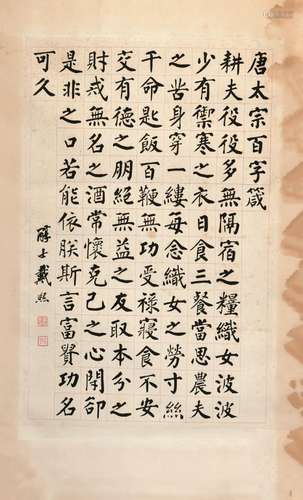 唐太宗百字箴
耕夫役役多無隔宿之糧織女波波
少有禦寒之衣日食三餐當思農夫
之苦身穿一縷每念織女之勞寸絲
千命匙飯百鞭無功受祿寢食不安
交有德之朋絕無益之友取本分之
財戒無名之酒常懷克己之心閉卻
是非之口若能依朕斯言富貴功名
可久
醇士戴熙